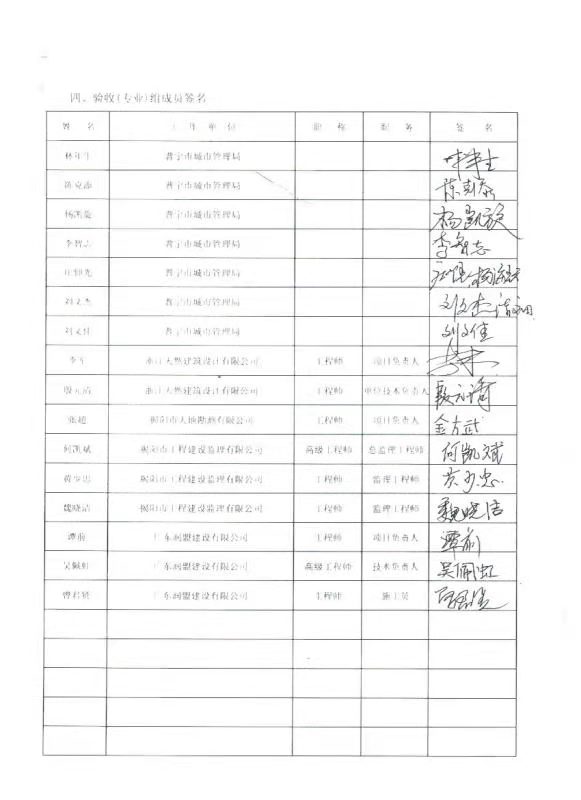 四、验收(专业)组成员签名
姓 名 工 作 单 位 职 称 职 务 签 名
林年生 普宁市城市管理局
陈克添 普宁市城市管理局
杨凯旋 普宁市城市管理局 杨凯旋
李智志 普宁市城市管理局 李智志
普宁市城市管理局
刘文杰 普宁市城市管理局 刘文杰
刘文佳 普宁市城市管理局 刘文佳
李军 浙江大然建筑设计有限公司 工程师 项目负责人
殷元清 浙江大然建筑设计有限公司 工程师 单位技术负责人
张超 揭阳市大地勘测有限公司 工程师 项目负责人 金方武
何凯斌 揭阳市工程建设监理有限公司 高级工程师 总监理工程师 何凯斌
黄少忠 揭阳市工程建设监理有限公司 工程师 监理工程师 黄少忠
魏晓洁 揭阳市工程建设监理有限公司 工程师 监理工程师 魏晓洁
谭莉 广东润盟建设有限公司 工程师 项目负责人 谭莉
吴佩虹 广东润盟建设有限公司 高级工程师 技术负责人 吴佩虹
广东润盟建设有限公司 工程师 施工员